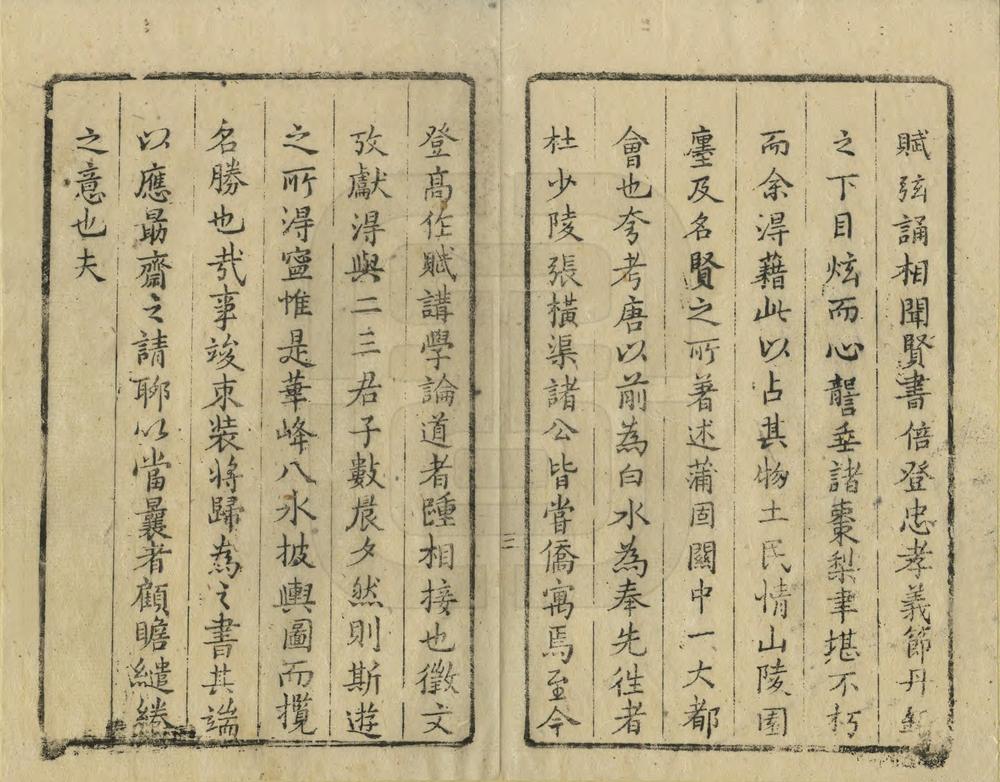 賦弦誦相聞賢書倍登忠孝義節丹
之下目炫而心讋垂諸棗梨聿堪不朽
而余淂藉此以占其物土民情山陵園
廛及名賢之所著述蒲固關中一大都
會也夸考唐以前為白水為奉先徃者
杜少陵張橫渠諸公皆嘗僑寓焉至今
三
登高作賦講學論道者踵相接也徵文
攷獻淂與二三君子數晨夕然則斯遊
之所淂寧惟是華峰八水披輿圖而攬
名勝也哉事竣束裝將歸為之書其端
以應勗齋之請聊以當曩者顧瞻繾綣
之意也夫